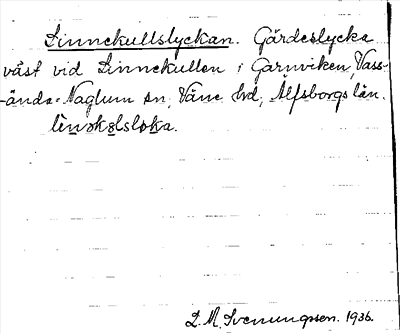 Linnekullslyckan. Gärdeslycka
väst vid Linnekullen i Garnviken, Vass-
-ända-Naglum sn, Väne hd, Älfsborgs län.
D. M. Svenungsson. 1936.